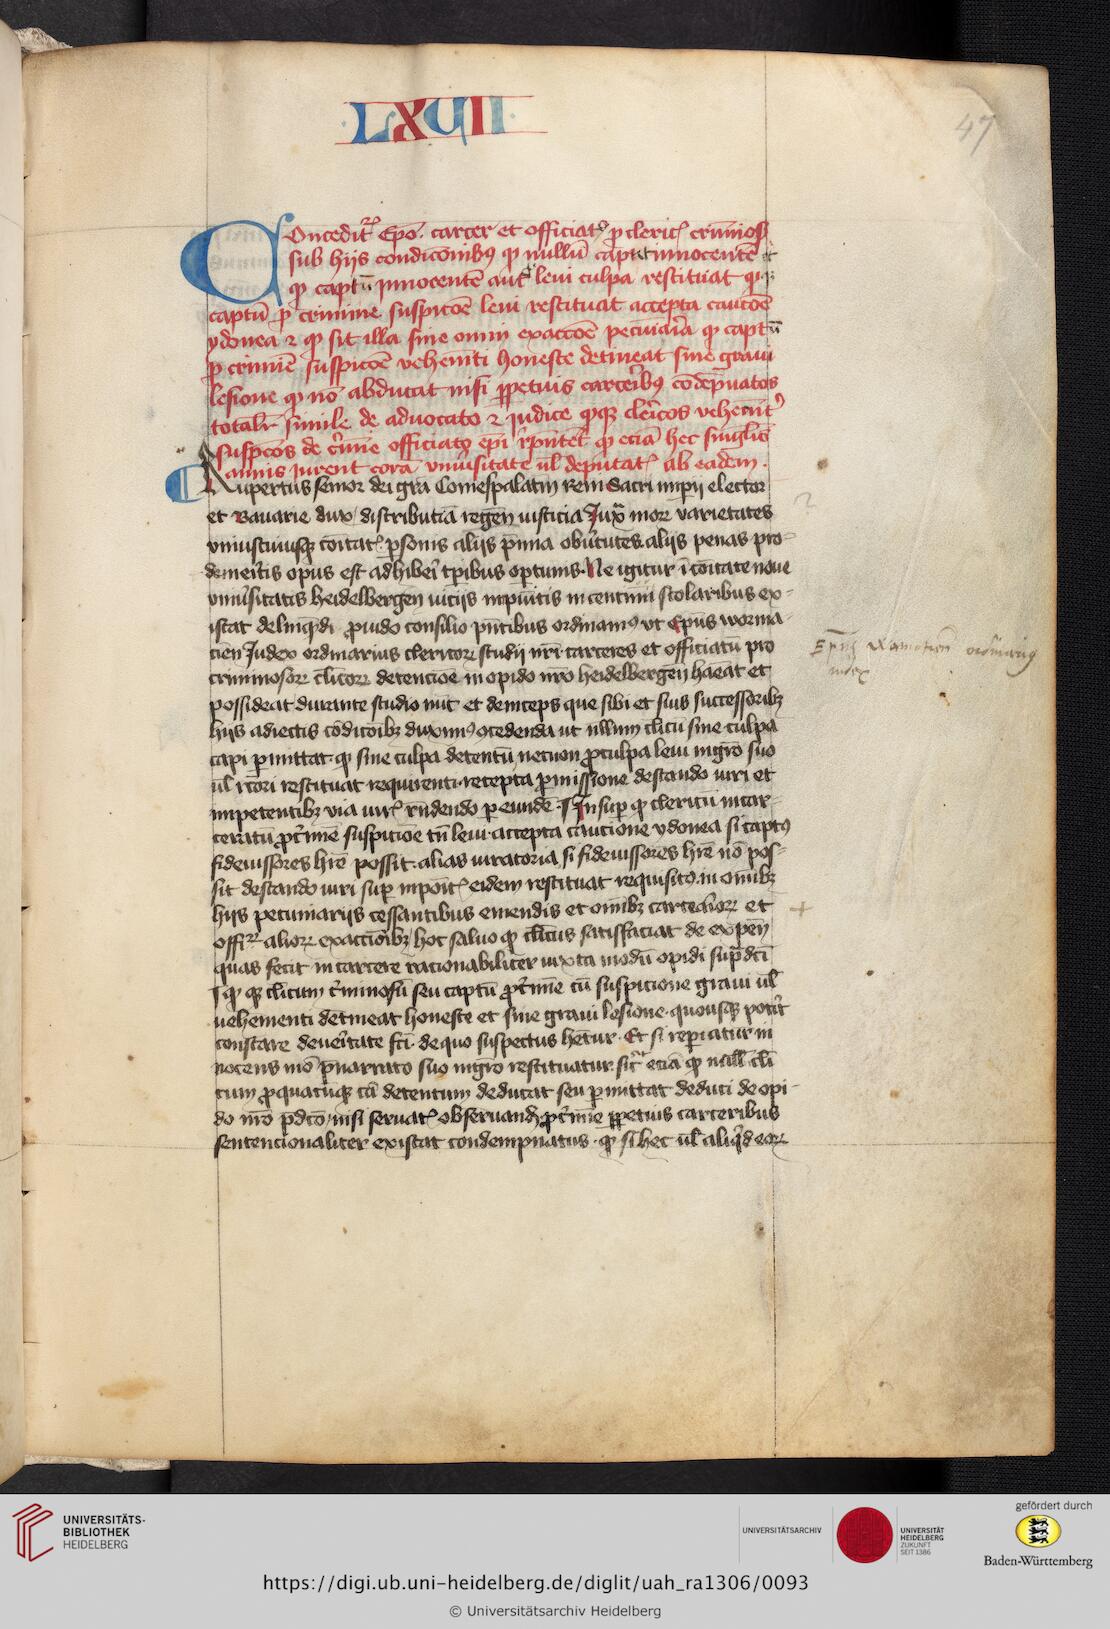 LXVII
47
Conceditr Epo carcer et officiatus pro clericis criminosis
sub hijs condicionibus quod nullum captet innocentem et
quod captum innocentem aut leui culpa restituat
captum pro crimine suspicoe leui restituat accepta cautoe
ydonea et quod sit illa sine omni exaccoe pecuniaria quod captum
pro crimine suspicoe vehementi honeste detineat sine graui
lesione quod non abducat nisi perpetuis carceribus condempnatos
totalr simile de aduocato et iudice clericos vehementer
suspcos de crimine officiato epi quod eciam hec singulis
annis iurent coram vniuersitate vel deputatis ab eadem.
Rupertus senior dei gra Comespalatin Reni Sacri imperij elector
et Bauarie dux distributiua regen iusticia Iuxta mor varietates
vniuscuiusque personis alijs premia alijs penas pro
demeritis opus est adhiberi opibus oportunis. Ne igitur in coitate noue
vniuersitatis heidelbergen vicijs impunitis incentiui scolaribus ex-
istat delinquendi prouido consilio presentibus ordinamus vt Epus worma-
cien Iudex ordinarius clericorum studij nri carceres et officiatum pro
criminosorum clicorum detencioe in opido nro heidelbergen habeat et
possideat durante studio nunc et deinceps que sibi et suis successoribus
hijs adiectis condicoibus duximus concedenda ut nullum clicum sine culpa
capi permittat quod sine culpa detentum necnon pro culpa leui nigro suo
vel rcori restituat requirenti recepta permissione de stando iuri et
impetentibus via iuris respondendo per eundem. Insuper quod clericum incar-
ceratum pro crimine suspicioe tamen leui accepta cautione ydonea si captus
fideiussores habere possit alias iuratoria si fideiussores habere non pos-
sit de stando iuri super eidem restituat requisito in omnibus
hijs pecuniarijs cessantibus emendis et omnibus carcerariorum et
offi aliorum exactionibus hoc saluo quod clicus satisfaciat de expen
quas fecit in carcere racionabiliter iuxta modum opidi supradcti
quod clicum criminosum seu captum pro crimine cum suspicione graui vel
vehementi detineat honeste et sine graui lesione quousque poterit
constare de veritate fcti de quo suspectus habetur. Et si reperiatur in
nocens modo prenarrato suo restituatur eciam quod nullum cli
cum pro quacumque causa detentum deducat seu permittat deduci de opi-
do nro pdco nisi seruatis obseruandis pro crimine perpetuis carceribus
sentencionaliter existat condempnatus quod si hec vel aliquid eorum
Epus wormatien ordinarius
iudex
UNIVERSITÄTS-
BIBLIOTHEK
HEIDELBERG
UNIVERSITÄTSARCHIV
UNIVERSITÄT
HEIDELBERG
ZUKUNFT
SEIT 1386
gefördert durch
Baden-Württemberg
https://digi.ub.uni-heidelberg.de/diglit/uah_ra1306/0093
© Universitätsarchiv Heidelberg